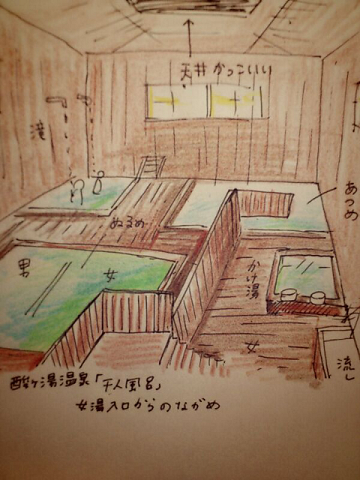 天井かっこいい
滝
あつめ
ぬるめ
男
女
かけ湯
女
流し
酸ヶ湯温泉「千人風呂」
女湯入口からのながめ